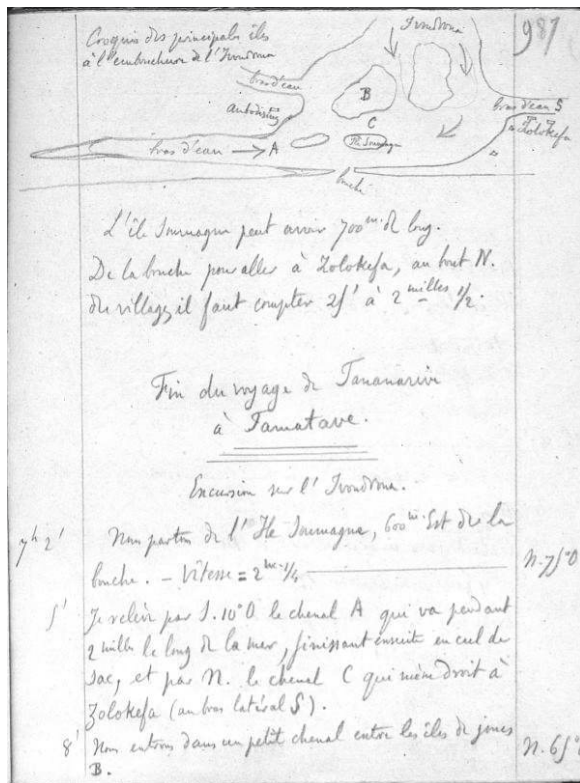 987
Croquis des principales îles
à l'embouchure de l'Ivondrona
Ivondrona
bras d'eau
B
C
bras d'eau → A
Ile Soumaque
bouche
bras d'eau S
Zolokefa
L'île Soumaque peut avoir 700m. de long.
De la bouche pour aller à Zolokefa, au bout N.
du village, il faut compter 25' à 2 milles 1/2.
Fin du voyage de Tananarive
à Tamatave.
Excursion sur l'Ivondrona.
7h 2'
Nous partons de l'Ile Soumaque, 600m. Est de la
bouche. - Vitesse = 2 1/4
N. 75° O
5'
Je relève par S. 10° O le chenal A qui va pendant
2 milles le long de la mer, finissant ensuite en cul de
sac, et par N. le chenal C qui mène droit à
Zolokefa (au bras latéral S).
8'
Nous entrons dans un petit chenal entre les îles de joncs
B.
N. 65°